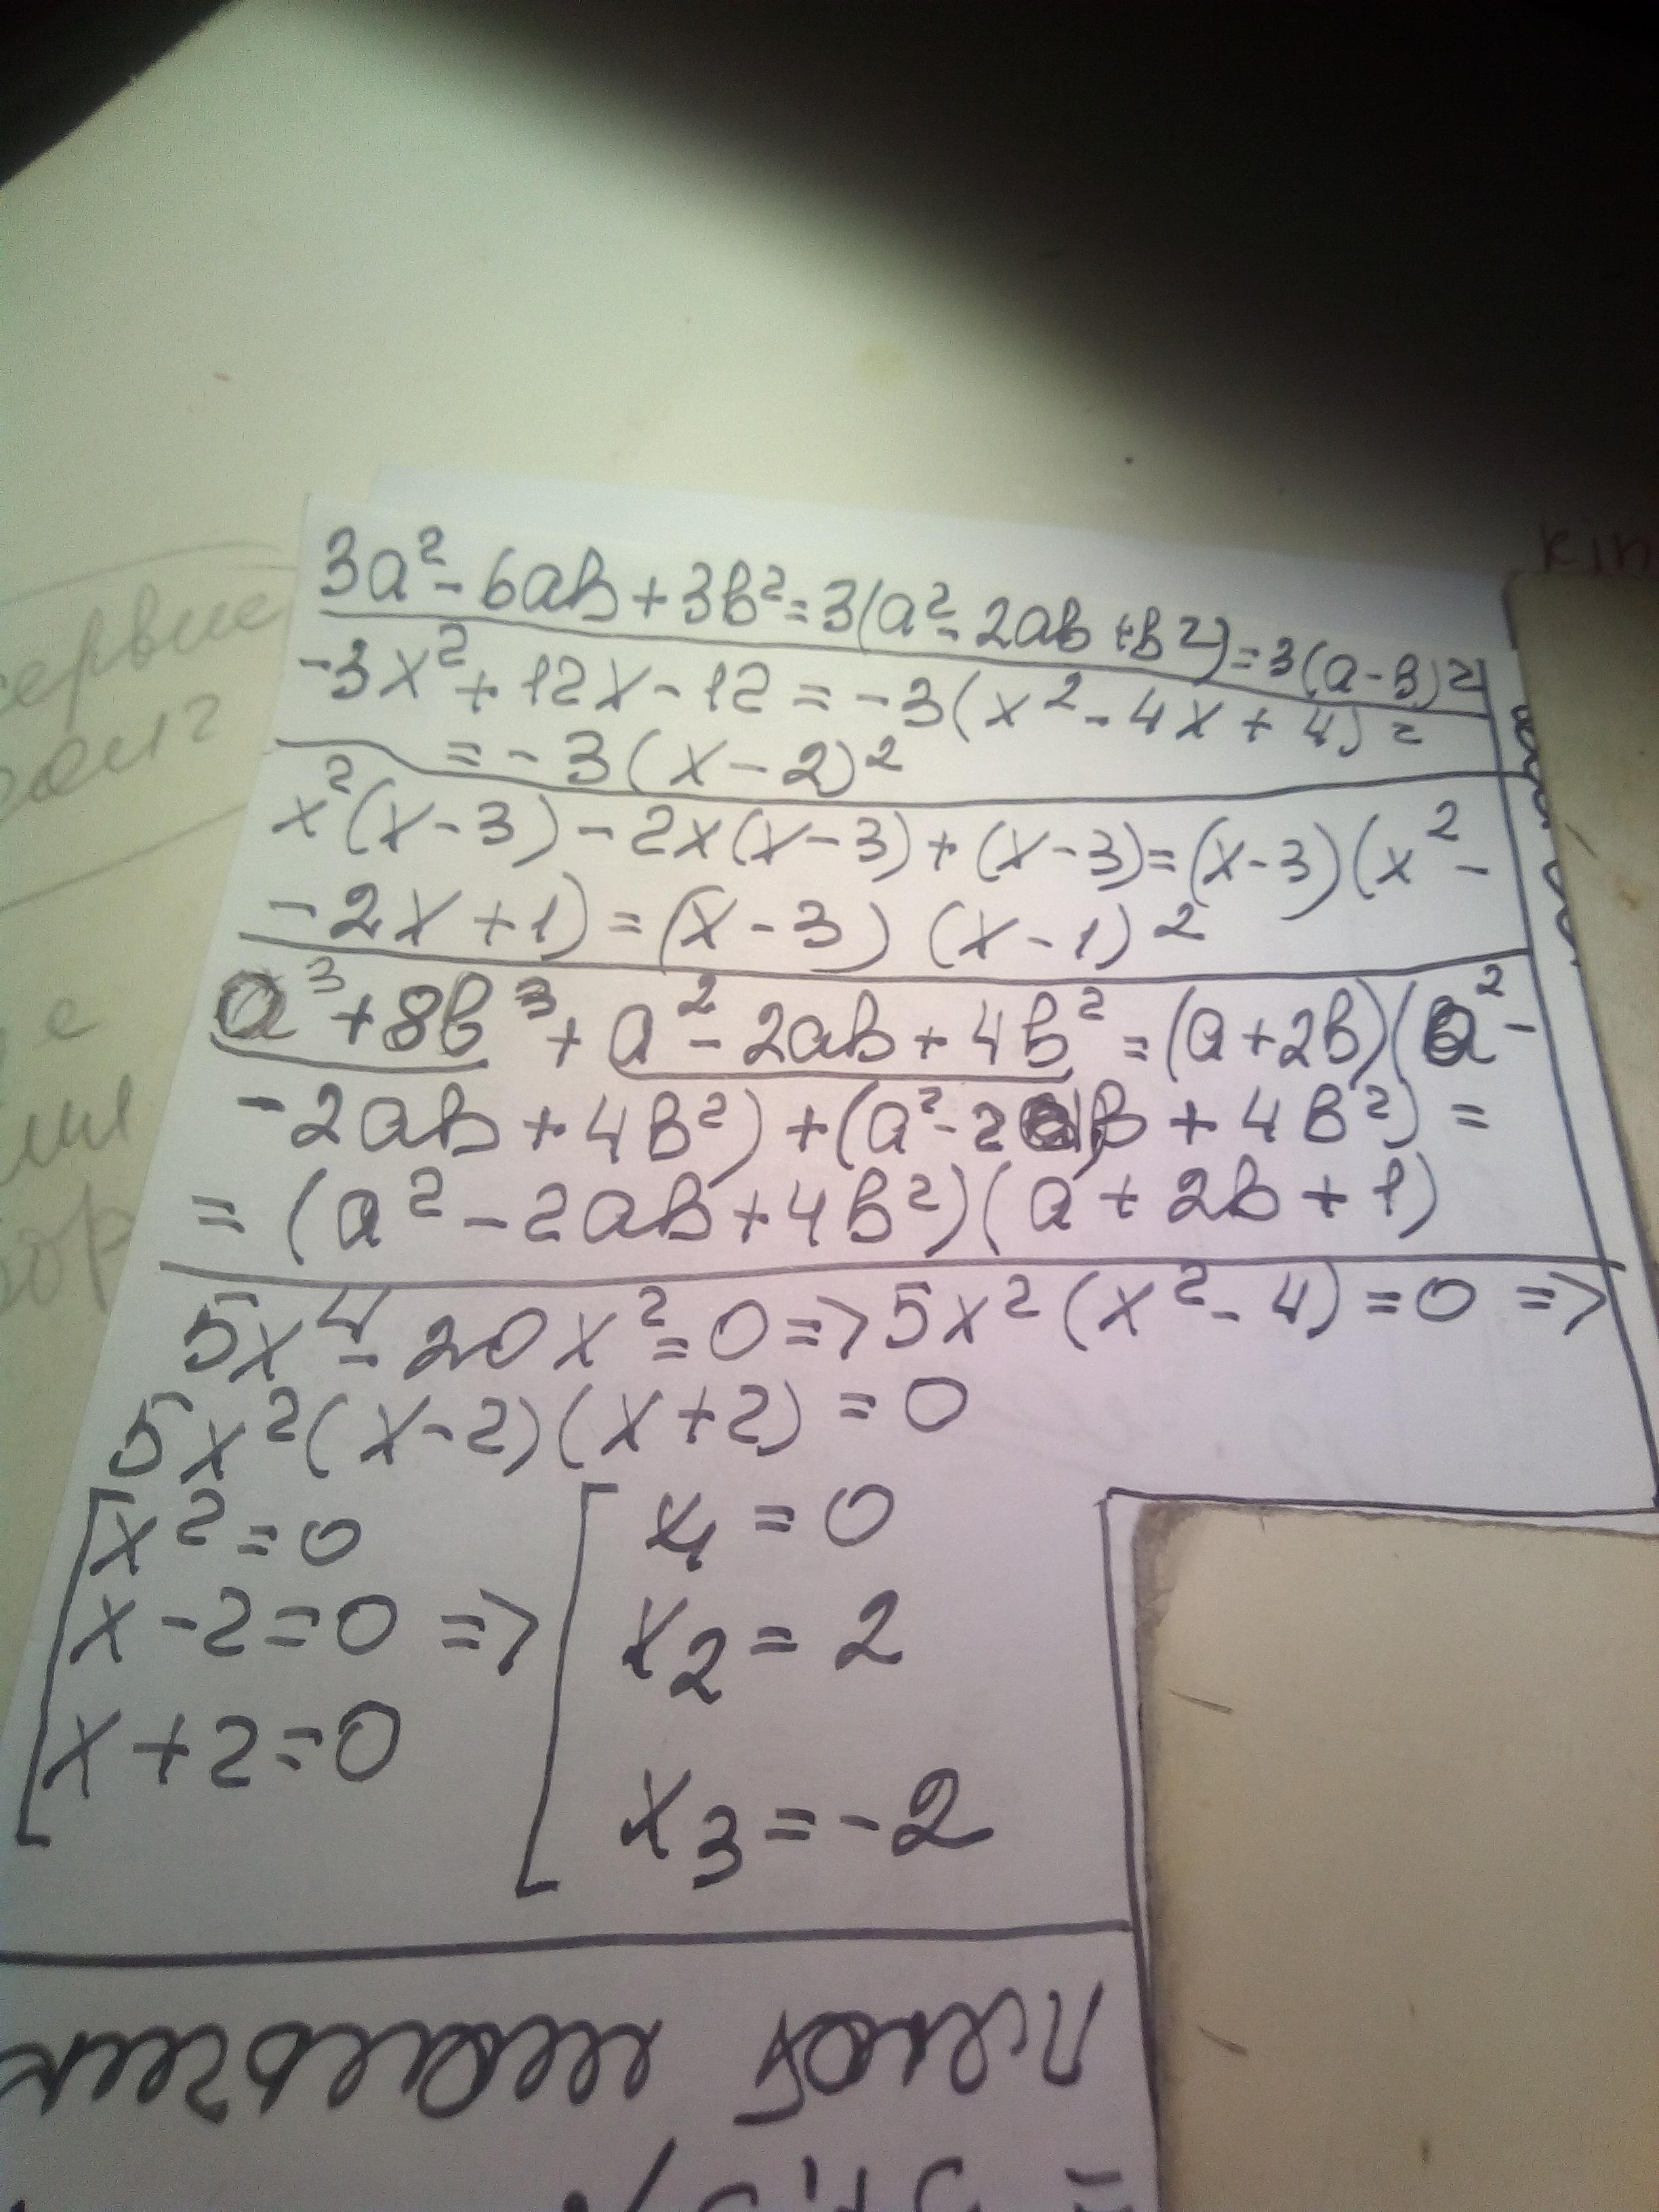 3a² - 6ab + 3b² = 3(a² - 2ab + b²) = 3(a - b)²
-3x² + 12x - 12 = -3(x² - 4x + 4) =
= -3(x - 2)²
x²(x - 3) - 2x(x - 3) + (x - 3) = (x - 3)(x² -
- 2x + 1) = (x - 3)(x - 1)²
a³ + 8b³ + a² - 2ab + 4b² = (a + 2b)(a² -
- 2ab + 4b²) + (a² - 2ab + 4b²) =
= (a² - 2ab + 4b²)(a + 2b + 1)
5x⁴ - 20x² = 0 => 5x²(x² - 4) = 0 =>
5x²(x - 2)(x + 2) = 0
[x² = 0 [x₁ = 0
x - 2 = 0 => x₂ = 2
x + 2 = 0
x₃ = -2